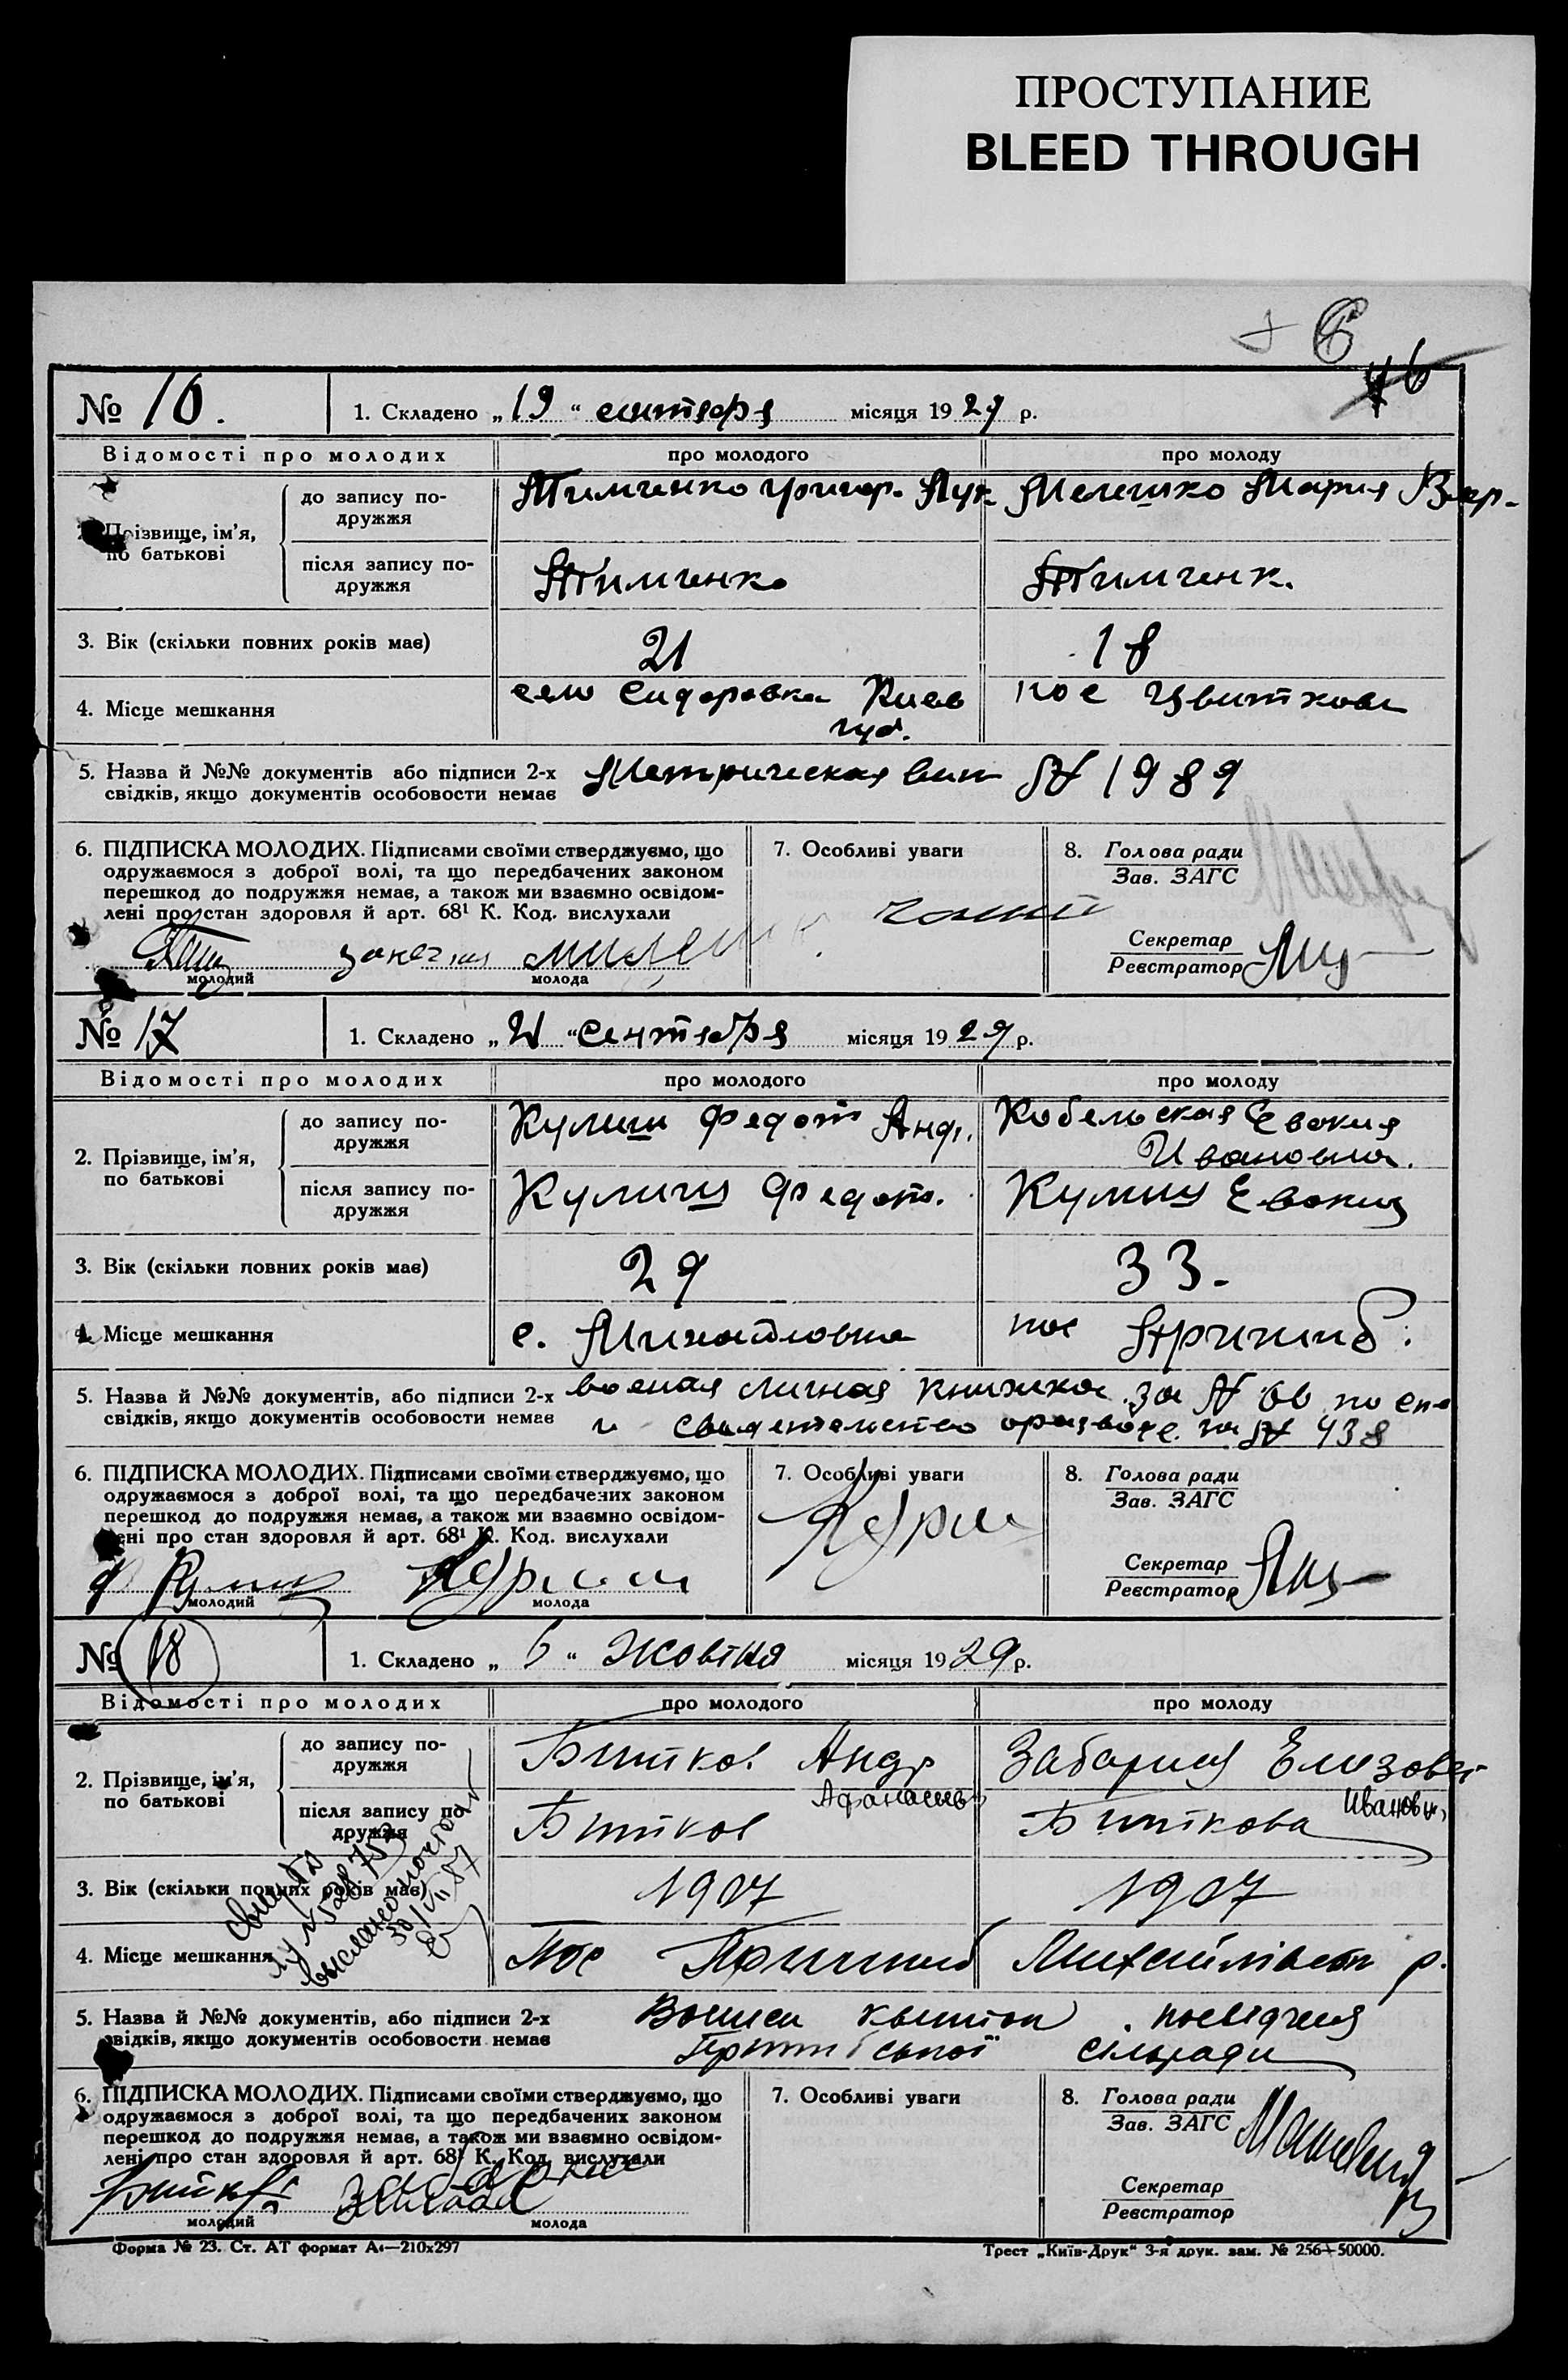 ПРОСТУПАНИЕ
BLEED THROUGH
№ 16. 1. Складено „19“ сентября місяця 1929 р.
Відомості про молодих про молодого про молоду
Прізвище, ім’я, по батькові
до запису по-
дружжя
Тимченко Григор. Лук Мелешко Мария
після запису по-
дружжя
Тимченко Тимченк.
3. Вік (скільки повних років має) 21 18
4. Місце мешкання село Сидоровка Киев губ. пос Цвиткова
5. Назва й №№ документів або підписи 2-х
свідків, якщо документів особовости немає
Метрическая вып № 1989
6. ПІДПИСКА МОЛОДИХ. Підписами своїми стверджуємо, що
одружаємося з доброї волі, та що передбачених законом
перешкод до подружжя немає, а також ми взаємно освідом-
лені про стан здоровля й арт. 68¹ К. Код. вислухали
молодий молода
7. Особливі уваги
8. Голова ради
Зав. ЗАГС
Секретар
Реєстратор
№ 17 1. Складено „21“ Сентября місяця 1929 р.
Відомості про молодих про молодого про молоду
2. Прізвище, ім’я,
по батькові
до запису по-
дружжя
Кулиш Федот Анд. Кобельская Евокия
Ивановна.
після запису по-
дружжя
Кулиш Федот. Кулиш Евокия
3. Вік (скільки повних років має) 29 33.
4. Місце мешкання с. Михайловка пос
5. Назва й №№ документів, або підписи 2-х
свідків, якщо документів особовости немає
военая личная книжка за № 66 по
и свидетельство о разводе за № 438
6. ПІДПИСКА МОЛОДИХ. Підписами своїми стверджуємо, що
одружаємося з доброї волі, та що передбачених законом
перешкод до подружжя немає, а також ми взаємно освідом-
лені про стан здоровля й арт. 68¹ К. Код. вислухали
молодий молода
7. Особливі уваги
8. Голова ради
Зав. ЗАГС
Секретар
Реєстратор
№ 18 1. Складено „6“ Жовтня місяця 1929 р.
Відомості про молодих про молодого про молоду
2. Прізвище, ім’я,
по батькові
до запису по-
дружжя
Битков Андр Елизовет
Афанасьев Ивановн
після запису по
дружжя
Битков Биткова
3. Вік (скільки повних років має) 1907 1907
4. Місце мешкання Пос Михайлівськ р.
5. Назва й №№ документів, або підписи 2-х
свідків, якщо документів особовости немає
квиток посвідченя
сільради
6. ПІДПИСКА МОЛОДИХ. Підписами своїми стверджуємо, що
одружаємося з доброї волі, та що передбачених законом
перешкод до подружжя немає, а також ми взаємно освідом-
лені про стан здоровля й арт. 68¹ К. Код. вислухали
молодий молода
7. Особливі уваги
8. Голова ради
Зав. ЗАГС
Секретар
Реєстратор
Форма № 23. Ст. АТ формат А4—210х297 Трест „Київ-Друк“ 3-я друк. зам. № 256—50000.